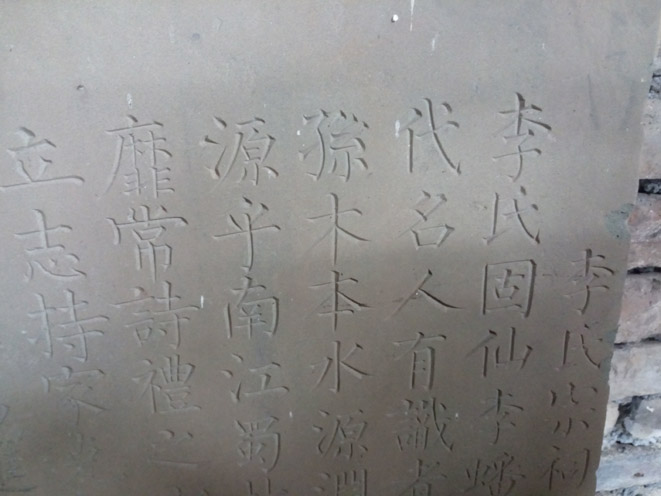 李氏宗祠
李氏固仙李蟠
代名人有讖者
孫木本水源淵
源乎南江蜀
靡常詩禮之
立志持家